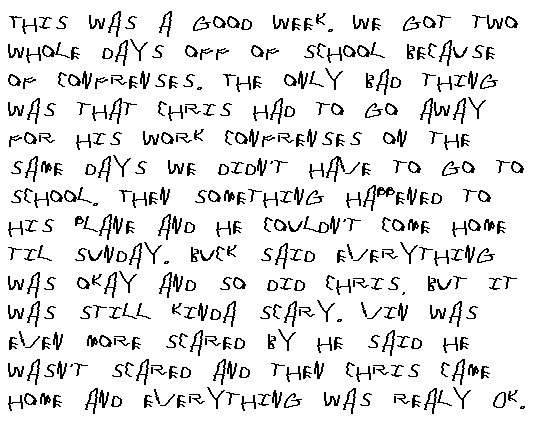 THIS WAS A GOOD WEEK. WE GOT TWO
WHOLE DAYS OFF OF SCHOOL BECAUSE
OF CONFRENSES. THE ONLY BAD THING
WAS THAT CHRIS HAD TO GO AWAY
FOR HIS WORK CONFRENSES ON THE
SAME DAYS WE DIDN'T HAVE TO GO TO
SCHOOL. THEN SOMETHING HAPPENED TO
HIS PLANE AND HE COULDN'T COME HOME
TIL SUNDAY. BUCK SAID EVERYTHING
WAS OKAY AND SO DID CHRIS, BUT IT
WAS STILL KINDA SCARY. VIN WAS
EVEN MORE SCARED BY HE SAID HE
WASN'T SCARED AND THEN CHRIS CAME
HOME AND EVERYTHING WAS REALY OK.